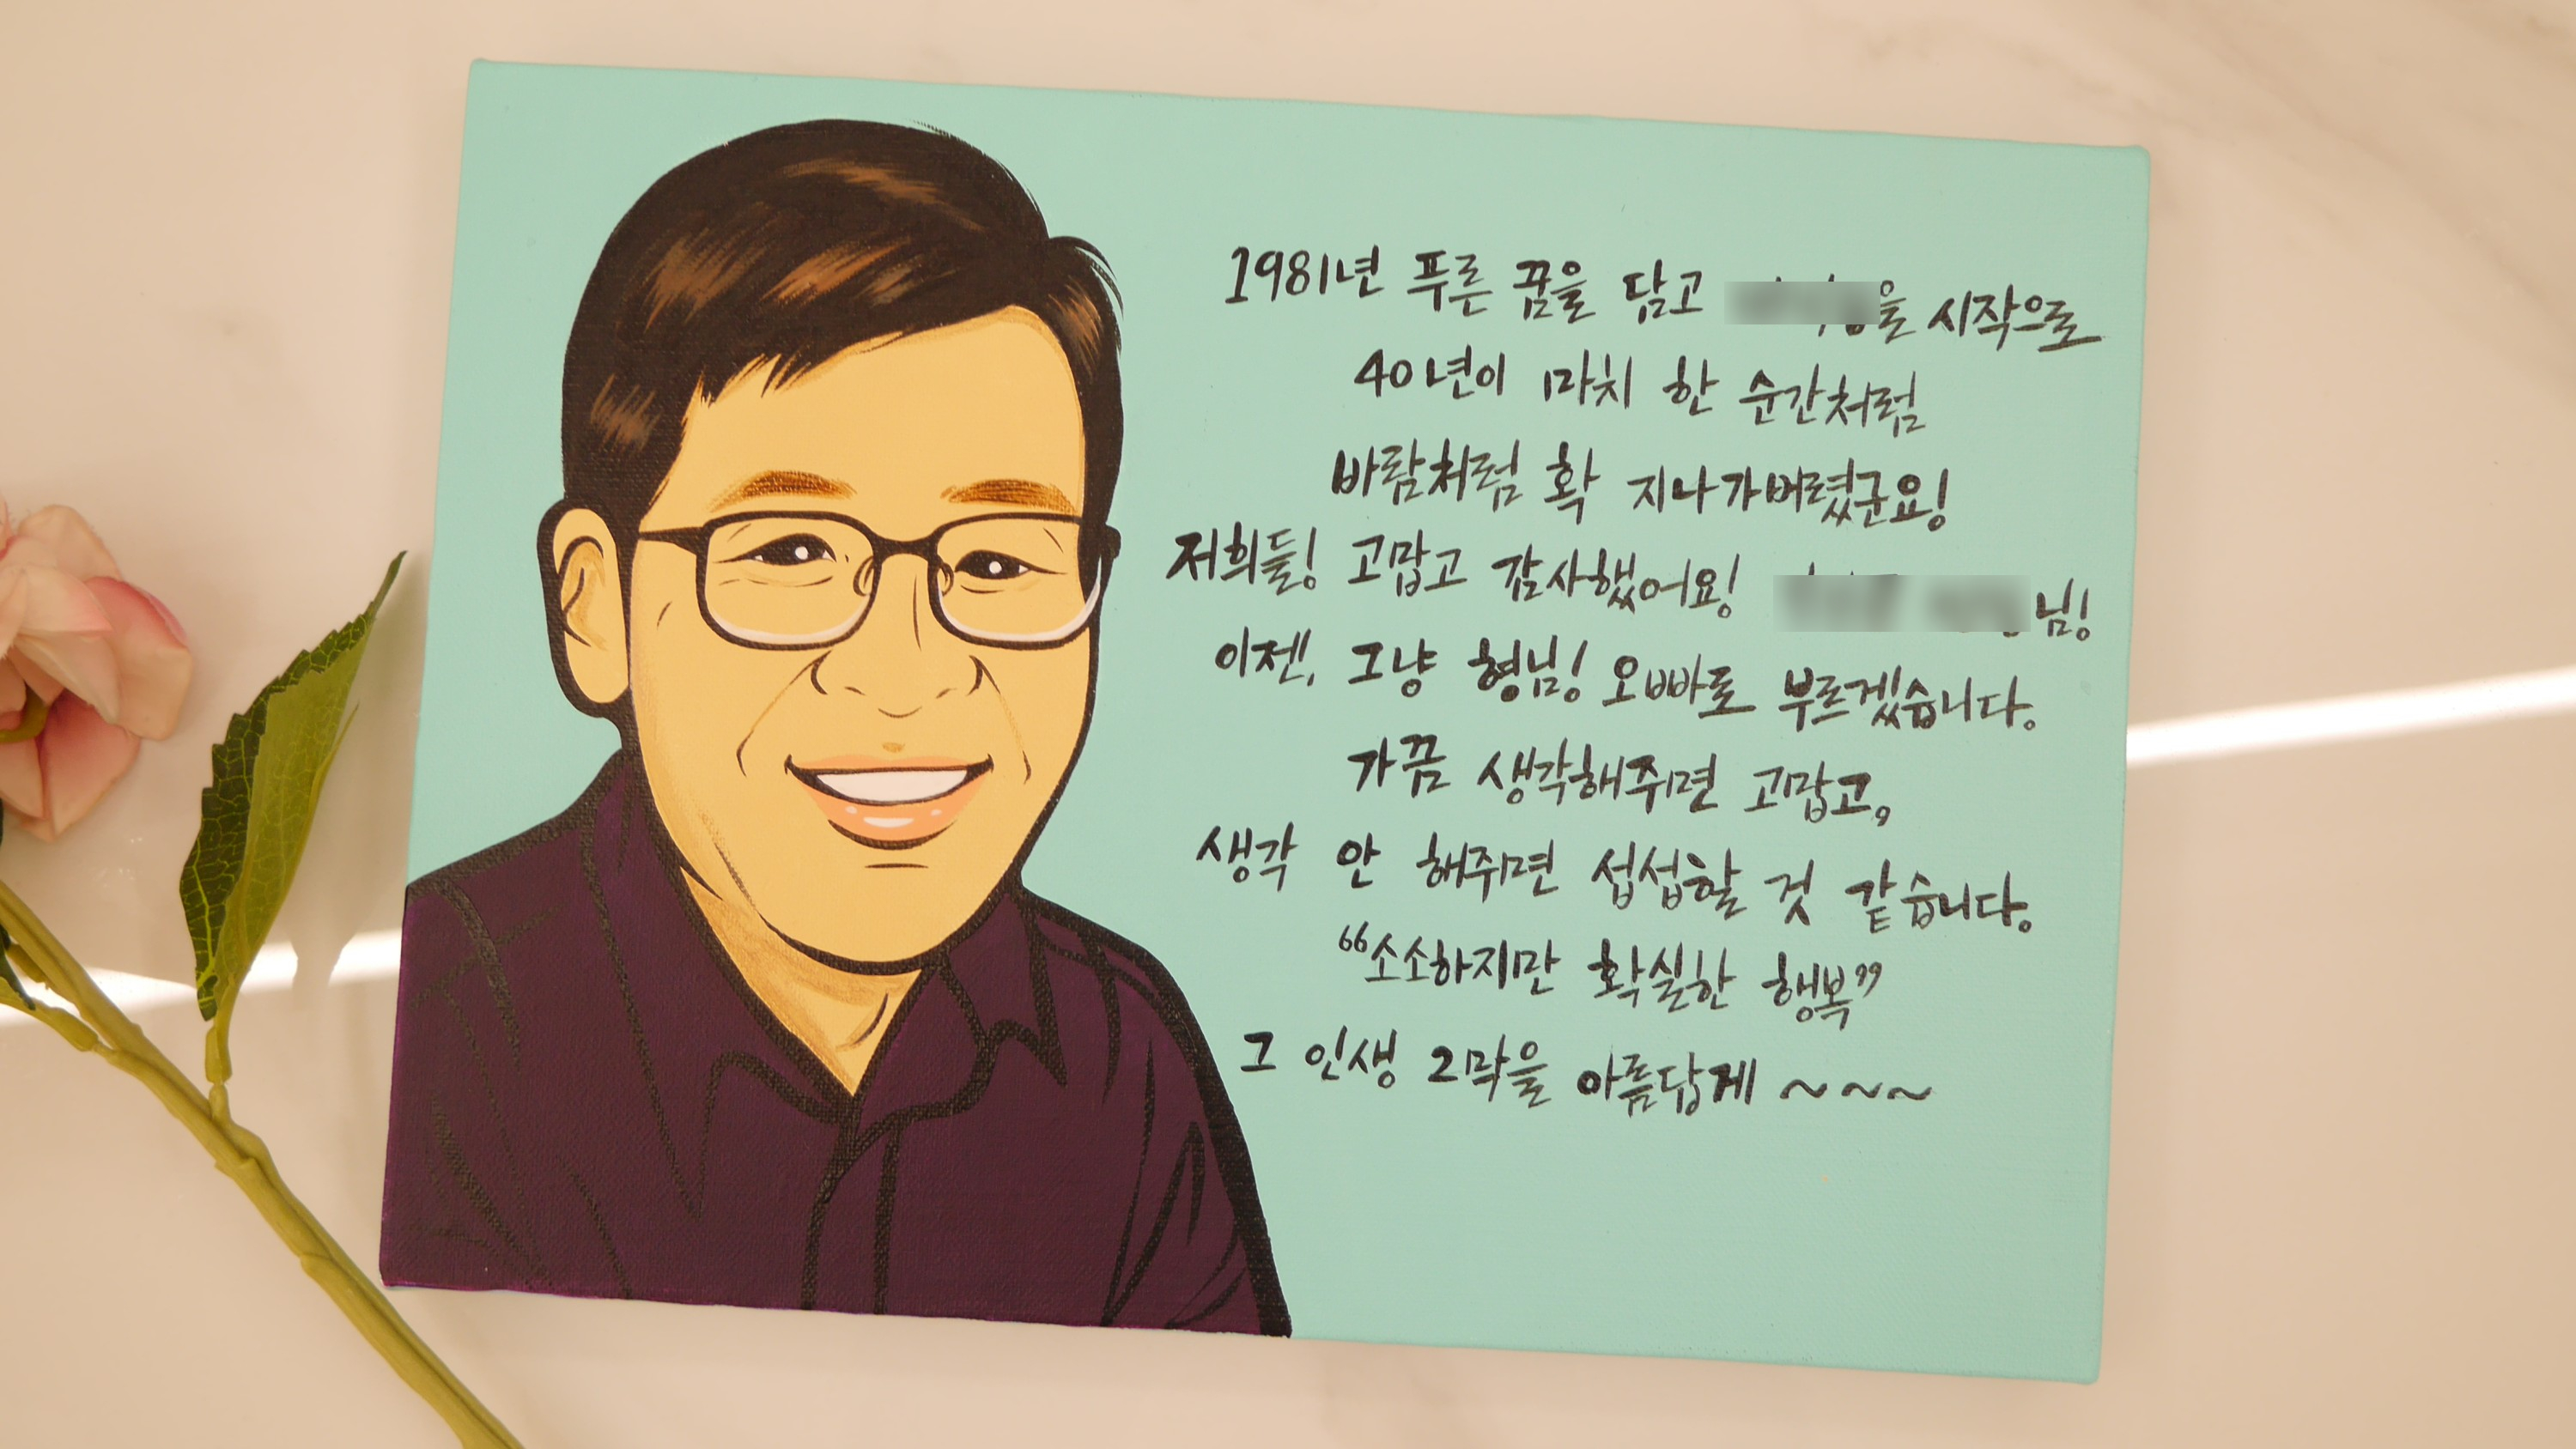 1981년 푸른 꿈을 담고 을 시작으로
40년이 마치 한 순간처럼
바람처럼 확 지나가버렸군요!
저희들! 고맙고 감사했어요! 님!
이젠, 그냥 형님! 오빠로 부르겠습니다.
가끔 생각해주면 고맙고,
생각 안 해주면 섭섭할 것 같습니다.
“소소하지만 확실한 행복”
그 인생 2막을 아름답게 ~~~